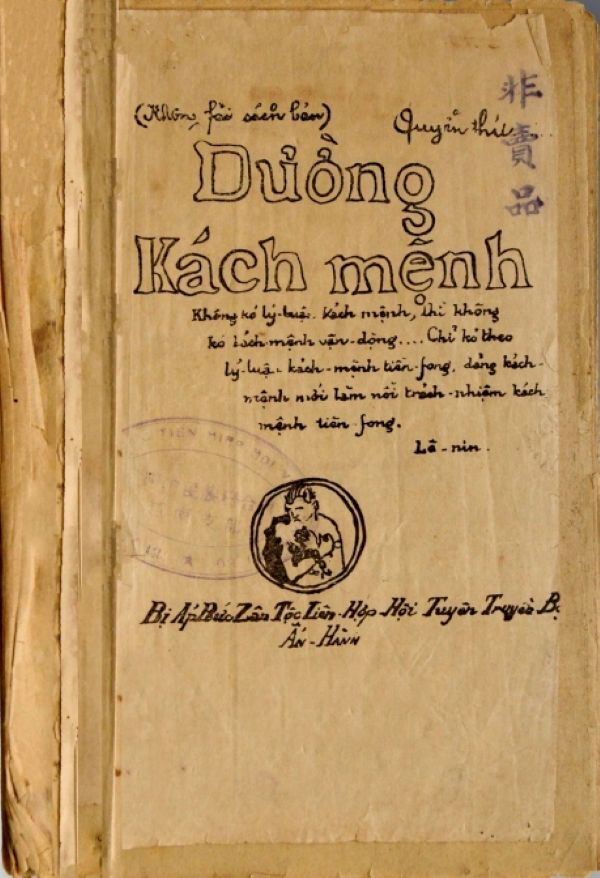 (Không fải sách bán)
Quyển thứ
非賣品
Đường
Kách mệnh
Không kó lý-luận kách mệnh, thì không
kó kách-mệnh vận-động.... Chỉ kó theo
lý-luận kách-mệnh tiền-fong, đảng kách-
mệnh mới làm nổi trách-nhiệm kách
mệnh tiền-fong.
Lê-nin.
Bị Áp Bức Zân Tộc Liên-Hợp-Hội Tuyên Truyền Bộ
Ấn-Hành